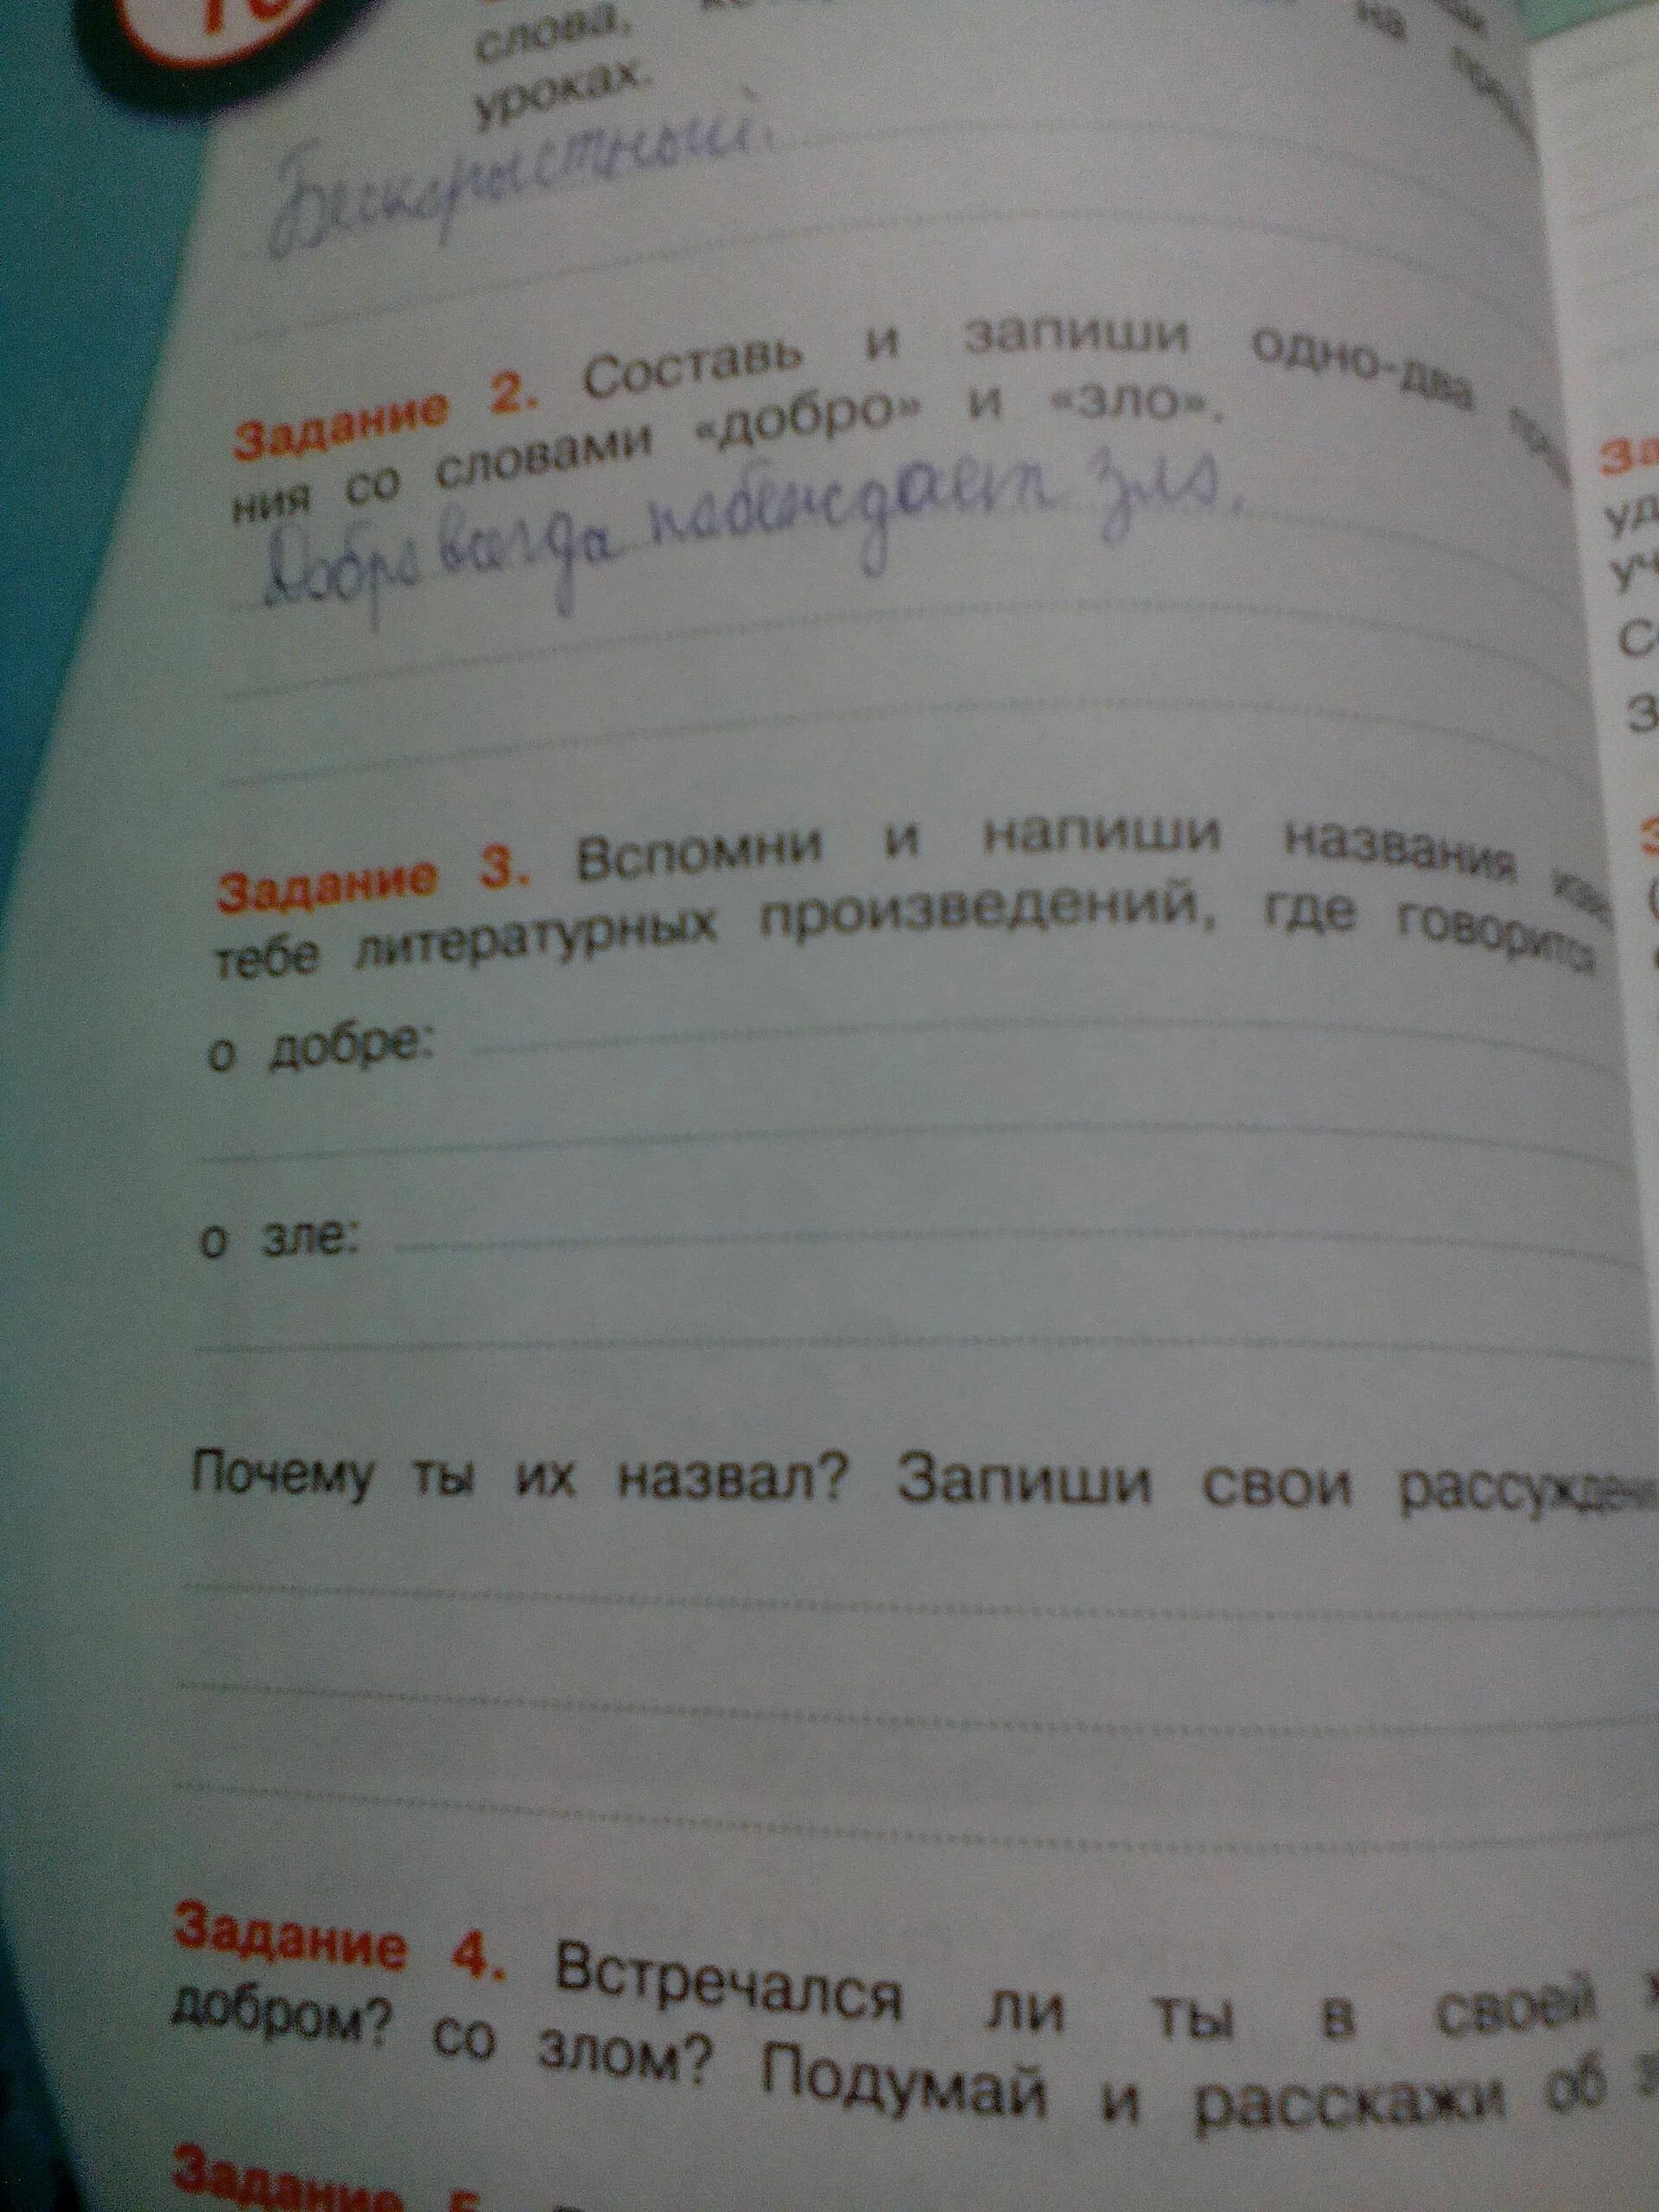 слова,
на
уроках.
Бескорыстный.
Задание 2. Составь и запиши одно-два
ния со словами «добро» и «зло».
Добро всегда побеждает зло.
Задание 3. Вспомни и напиши названия
тебе литературных произведений, где говорится
о добре:
о зле:
Почему ты их назвал? Запиши свои рассуждени
Задание 4. Встречался ли ты в своей
добром? со злом? Подумай и расскажи об
Задание 5.
За
уд
уч
С
З